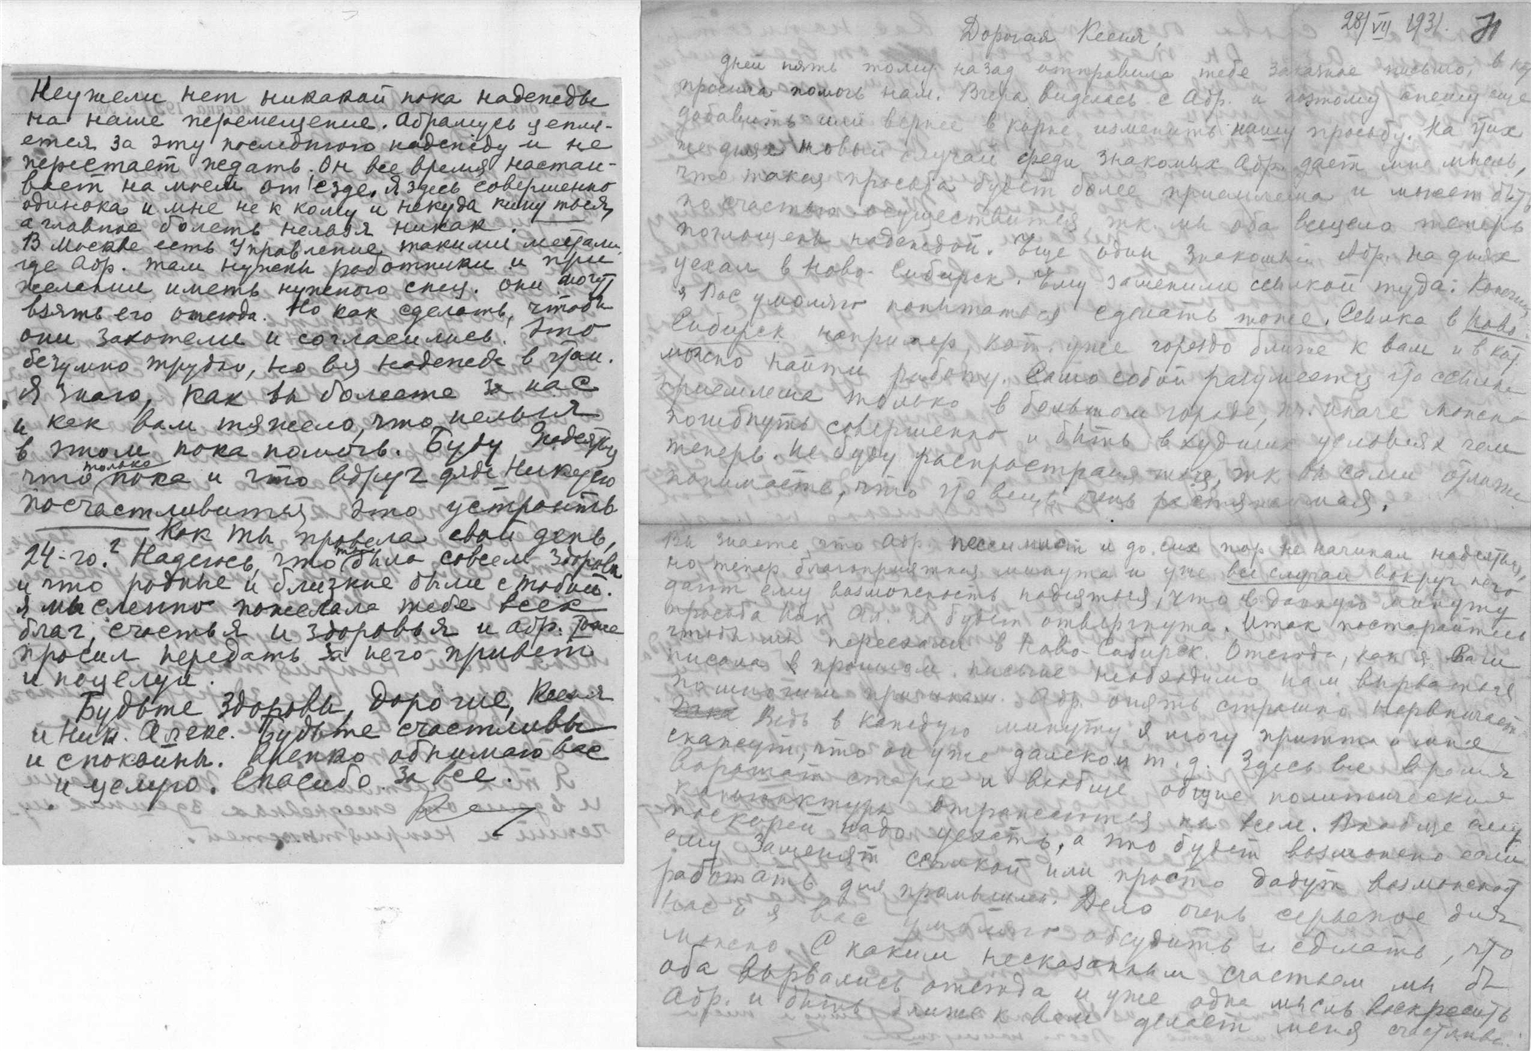 Неужели нет никакой пока надежды
на наше перемещение. Абрамусь цепля-
ется за эту последнюю надежду и не
перестает ждать. Он все время настаи-
вает на моем отъезде. Я здесь совершенно
одинока и мне не к кому и некуда кинуться,
а главное болеть нельзя никак.
В Москве есть Управление такими местами
где Абр. Там нужны работники и при
желании иметь нужного спец. они могут
взять его отсюда. Но как сделать, чтобы
они захотели и согласились. Это
безумно трудно, но вся надежда в этом.
Я знаю, как вы болеете за нас
и как вам тяжело, что нельзя
в этом пока помочь. Буду надеяться
что только пока и что вдруг дяде Никусю
посчастливится это устроить
Как ты провела свой день,
24-го? Надеюсь, что ты была совсем здорова
и что родные и близкие были с тобой.
Я мысленно пожелала тебе всех
благ, счастья и здоровья и Абр. тоже
просил передать за него привет
и поцелуй.
Будьте здоровы, дорогие, Ксеня
и Ник. Алекс. Будьте счастливы
и спокойны. Крепко обнимаю вас
и целую. Спасибо за все.
28/VII 1931.
Дорогая Ксеня,
дней пять тому назад отправила тебе заказное письмо, в кот.
просила помочь нам. Вчера виделась с Абр. и поэтому спешу еще
добавить или вернее в корне изменить нашу просьбу. На этих
же днях новый случай среди знакомых Абр. дает мне мысль,
что такая просьба будет более приемлема и может быть
по счастью осуществится, т.к. мы оба всецело теперь
поглощены надеждой. Еще один знакомый Абр. на днях
уехал в Ново-Сибирск. Ему заменили ссылкой туда. Конечно
я Вас умоляю попытаться сделать тоже. Ссылка в Ново-
Сибирск например, кот. уже гораздо ближе к вам и в кот.
можно найти работу. Само собой разумеется эта ссылка
приемлема только в большом городе, т.к. иначе можно
погибнуть совершенно и быть в худших условиях чем
теперь. Не буду распространяться, т.к. вы сами отлично
понимаете, что
Вы знаете, что Абр. пессимист и до сих пор не начинал надеяться,
но теперь благоприятная минута и уже все случаи вокруг него
дают ему возможность надеяться, что в данную минуту
просьба Ник. Ал. не будет отвергнута. Итак постарайтесь
чтобы мы переехали в Ново-Сибирск. Отсюда, как я Вам
писала в прошлом письме необходимо нам вырваться
по многим причинам. Абр. опять страшно нервничает
Ведь в каждую минуту я могу придти и мне
скажут, что он уже далеко и т.д. Здесь все время
ворошат старое и вообще общие политические
конъюнктуры отражаются на всем. Вообще ему
поскорей надо уехать, а это будет возможно если
ему заменят ссылкой или просто дадут возможность
работать для промышл. Дело очень серьезное для
нас и я вас умоляю обсудить и сделать, что
можно. С каким несказанным счастьем мы бы
оба вырвались отсюда и уже одна мысль воскресить
Абр. и быть ближе к вам делает меня счастливой.